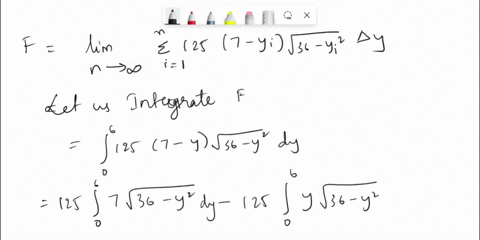 F = lim n→∞ Σ i=1 n 125 (7-yi) √36-yi² Δy
Let us Integrate F
= ∫₀⁶ 125 (7-y) √36-y² dy
= 125 ∫₀⁶ 7√36-y² dy - 125 ∫₀⁶ y√36-y²